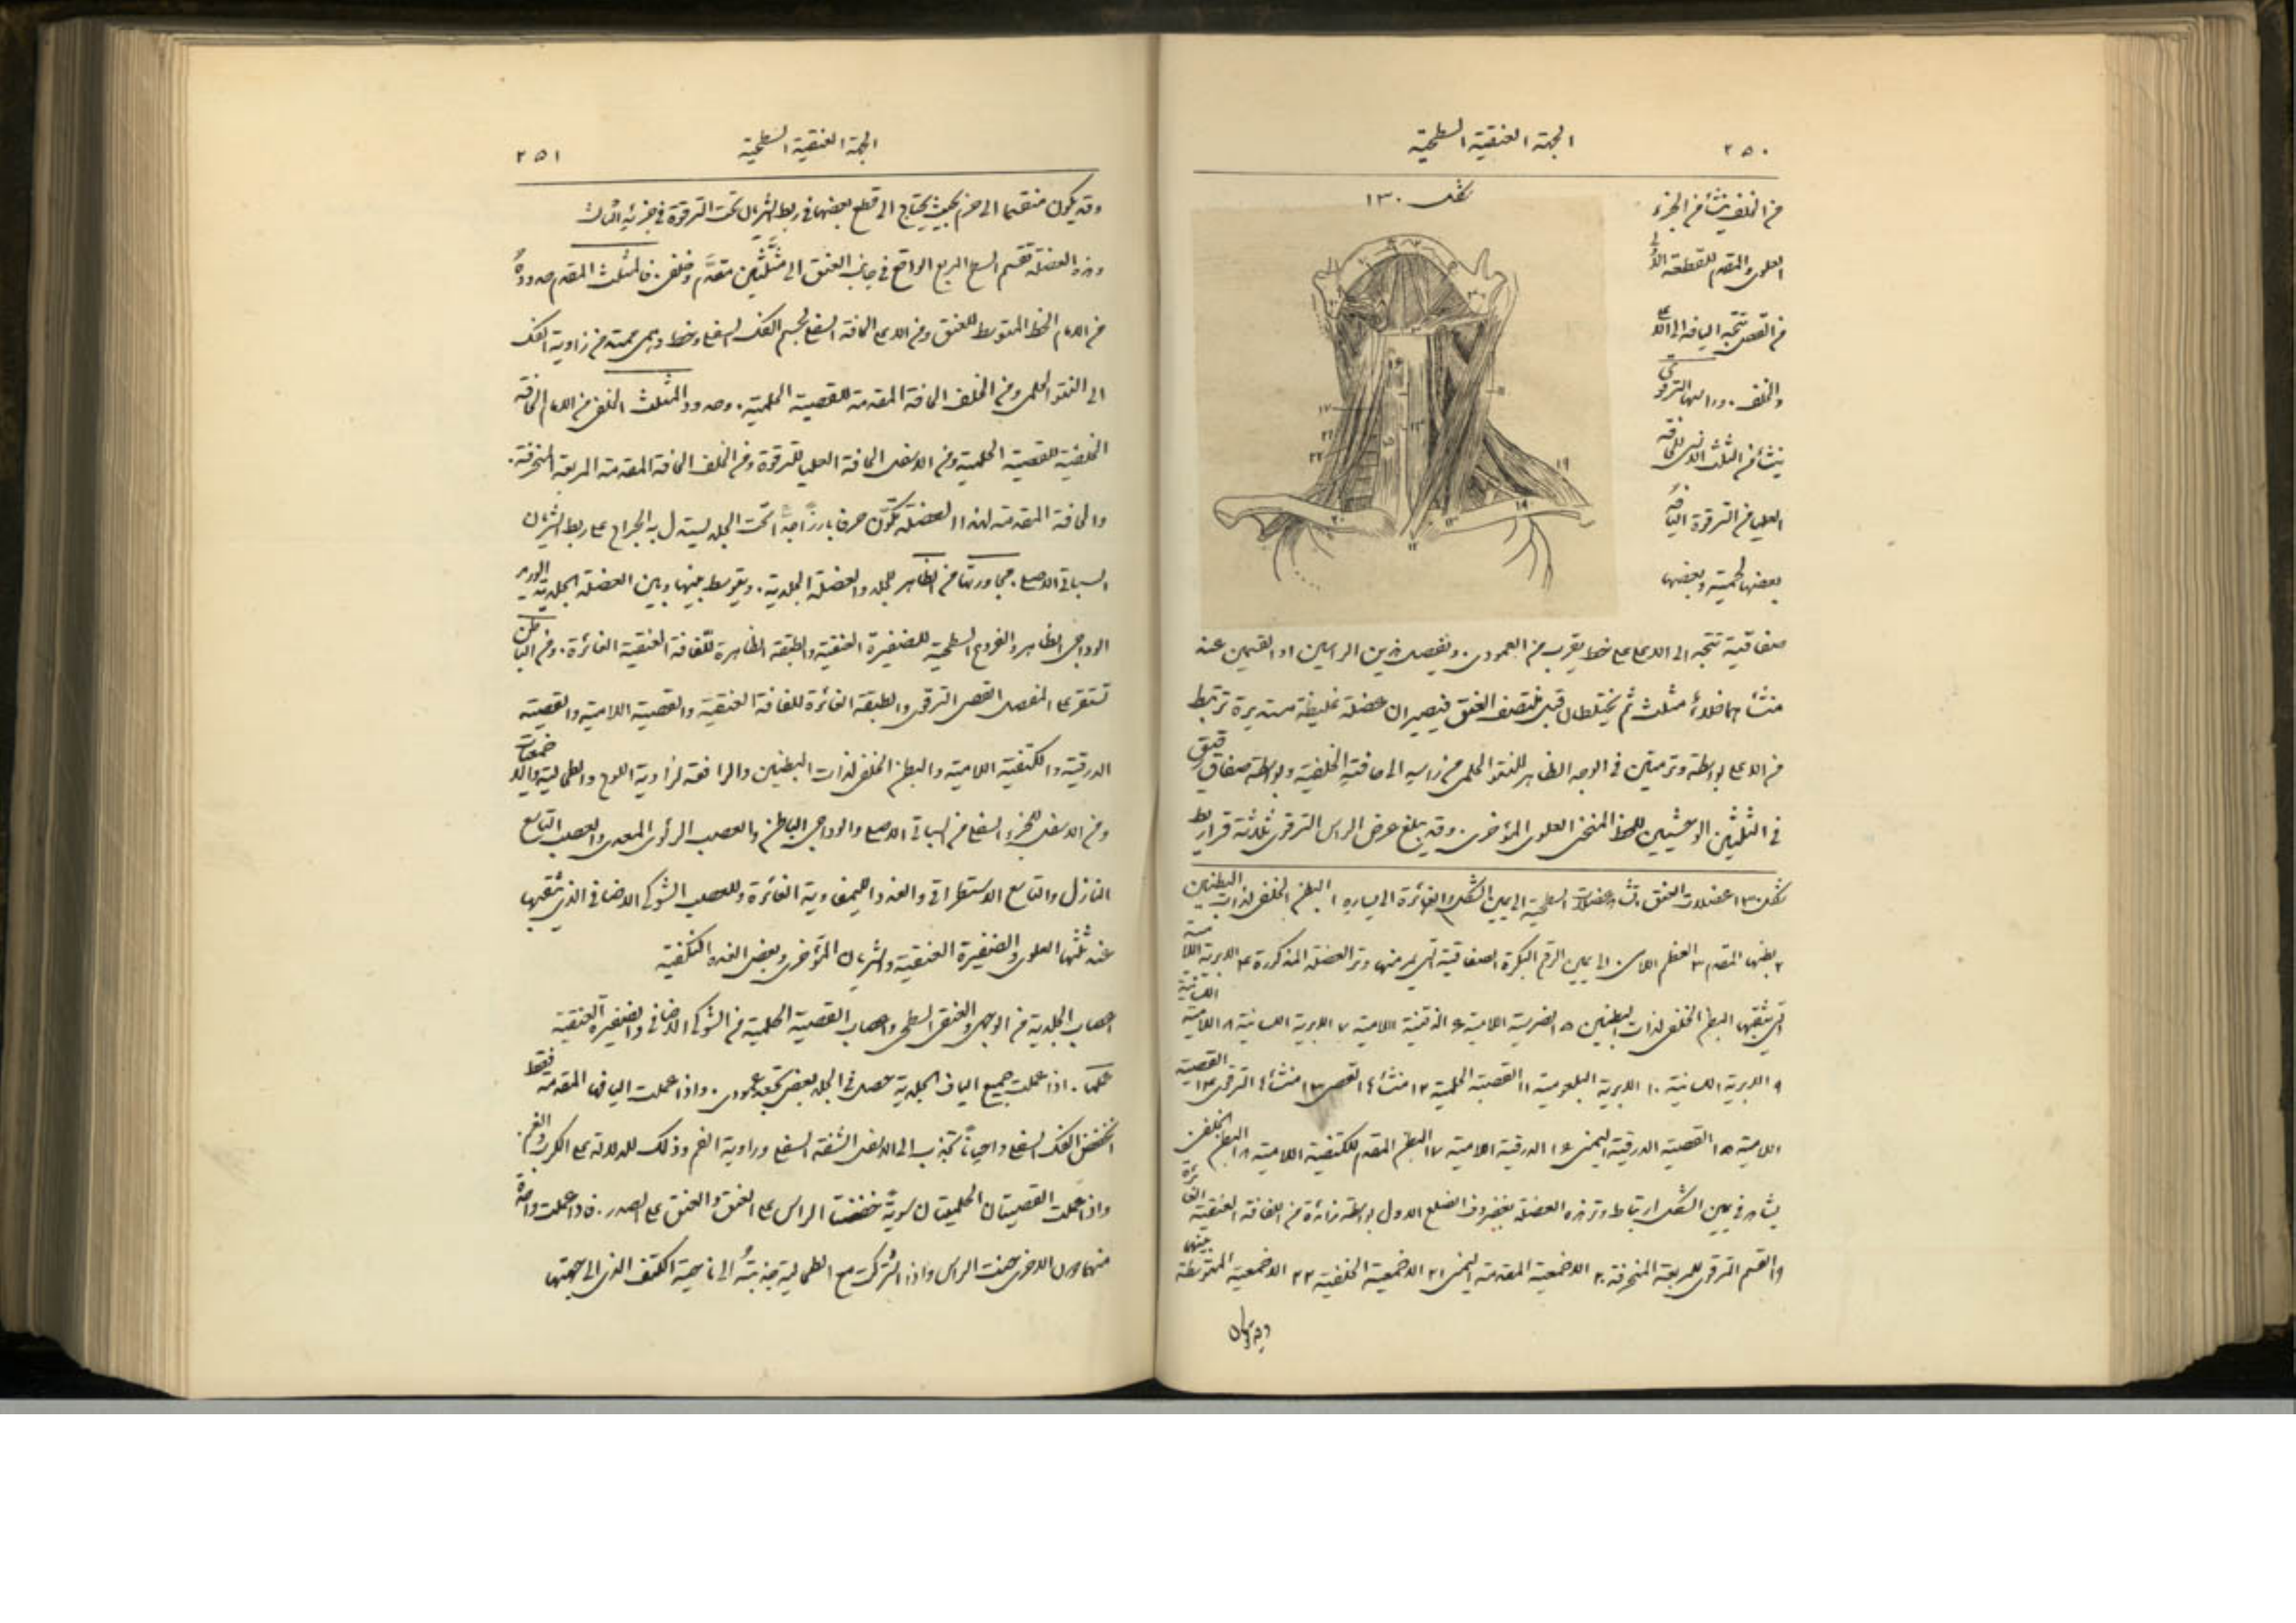 ٢٥٠
الجهة العنقية السطحية
شكل ١٣٠
من الخلف ينشأ من الجزء
العلوي والمقدم للقطعة الاولى
من القص تتجه اليافه الى الاعلى
والخلف. وراسها الترقوي
ينشأ من الثلث الانسي للحافة
العليا من الترقوة اليافه
بعضها لحمية وبعضها
صفاقية تتجه الى الاعلى على خط يقرب من العمودي. ويفصل بين الراسين او القسمين عند
منشأهما خلاء مثلث ثم يختلطان قبل منتصف العنق فيصيران عضلة غليظة مستديرة ترتبط
من الاعلى بواسطة وتر متين في الوجه الظاهر للنتو الحلمي من راسه الى حافته الخلفية وبواسطة صفاق رقيق
في الثلثين الوحشيين للخط المنحني العلوي المؤخري. وقد يبلغ عرض الراس الترقوي ثلاثة قراريط
شكل ١٣٠ عضلات العنق العضلات السطحية الى يمين الشكل والغائرة الى يساره ١ البطن الخلفي لذات البطنين
٢ بطنها المقدم ٣ العظم اللامي. الى يمين الرقم البكرة الصفاقية التي يمر منها وتر العضلة المذكورة ٤ الابرية اللامية
التي يثقبها البطن الخلفي لذات البطنين ٥ الضرسية اللامية ٦ الذقنية اللامية ٧ الابرية اللسانية ٨ اللامية اللسانية
٩ الابرية اللسانية ١٠ الابرية البلعومية ١١ القصية الحلمية ١٢ منشأها القصي ١٣ منشأها الترقوي ١٤ القصية
اللامية ١٥ القصية الدرقية اليمنى ١٦ الدرقية اللامية ١٧ البطن المقدم للكتفية اللامية ١٨ البطن الخلفي
يشاهد في يمين الشكل ارتباط وتر هذه العضلة بغضروف الضلع الاول بواسطة زائدة من اللفافة العنقية الغائرة
١٩ القسم الترقوي للمربعة المنحرفة ٢٠ الاخمعية المقدمة اليمنى ٢١ الاخمعية الخلفية ٢٢ الاخمعية المتوسطة
٢٥١
الجهة العنقية السطحية
وقد يكون منقسما الى حزم بحيث يحتاج الى قطع بعضها في ربط الشريان تحت الترقوة في جزئه الثالث
وهذه العضلة تقسم السطح المربع الواقع في جانب العنق الى مثلثين مقدم وخلفي. فالمثلث المقدم حدوده
من الامام الخط المتوسط للعنق ومن الاعلى الحافة السفلى لجسم الفك السفلي وخط وهمي ممتد من زاوية الفك
الى النتو الحلمي ومن الخلف الحافة المقدمة للقصية الحلمية. وحدود المثلث الخلفي من الامام الحافة
الخلفية للقصية الحلمية ومن الاسفل الحافة العليا للترقوة ومن الخلف الحافة المقدمة المربعة المنحرفة.
والحافة المقدمة لهذه العضلة تكون حرفا بارزا جدا تحت الجلد يستدل به الجراح على ربط الشريان
السباتي الاصلي. مجاورتها من الظاهر الجلد والعضلة الجلدية. ويتوسط بينها وبين العضلة الجلدية الوريد
الوداجي الظاهر والفروع السطحية للضفيرة العنقية والطبقة الظاهرة للفافة العنقية الغائرة. ومن الباطن
تستقر على المفصل القصي الترقوي والطبقة الغائرة للفافة العنقية والقصية اللامية والقصية
الدرقية والكتفية اللامية والبطن الخلفي لذات البطنين والرافعة لزاوية اللوح والطحالية والاخمعيات
ومن الاسفل للجزء السفلي من السباتي الاصلي والوداجي الباطن والعصب الرئوي المعدي والعصب التاسع
النازل والتاسع الاستطراقي والغدد الليمفاوية الغائرة وللعصب الشوكي الاضافي الذي يثقبها
عند ثلثها العلوي والضفيرة العنقية والشريان المؤخري وبعض الغدة النكفية
اعصاب الجلدية من الوجهي والعنقي السطحي واعصاب القصية الحلمية من الشوكي الاضافي والضفيرة العنقية
عملها. اذا عملت جميع الياف الجلدية حصل في الجلد بعض تجعد عمودي. واذا عملت اليافها المقدمة فقط
انخفض الفك السفلي واحيانا تجذب الى الاسفل الشفة السفلى وزاوية الفم وذلك للدلالة على الكرب والغم.
واذا عملت القصيتان الحلميتان سوية خفضتا الراس على العنق والعنق على الصدر. واذا عملت واحدة
منهما دون الاخرى حنت الراس واذا اشتركت مع الطحالية جذبته الى ناحية الكتف الذي الى جهتها